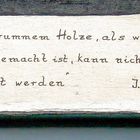 rummem Holze, als w
emacht ist, kann nich
t werden"   J.